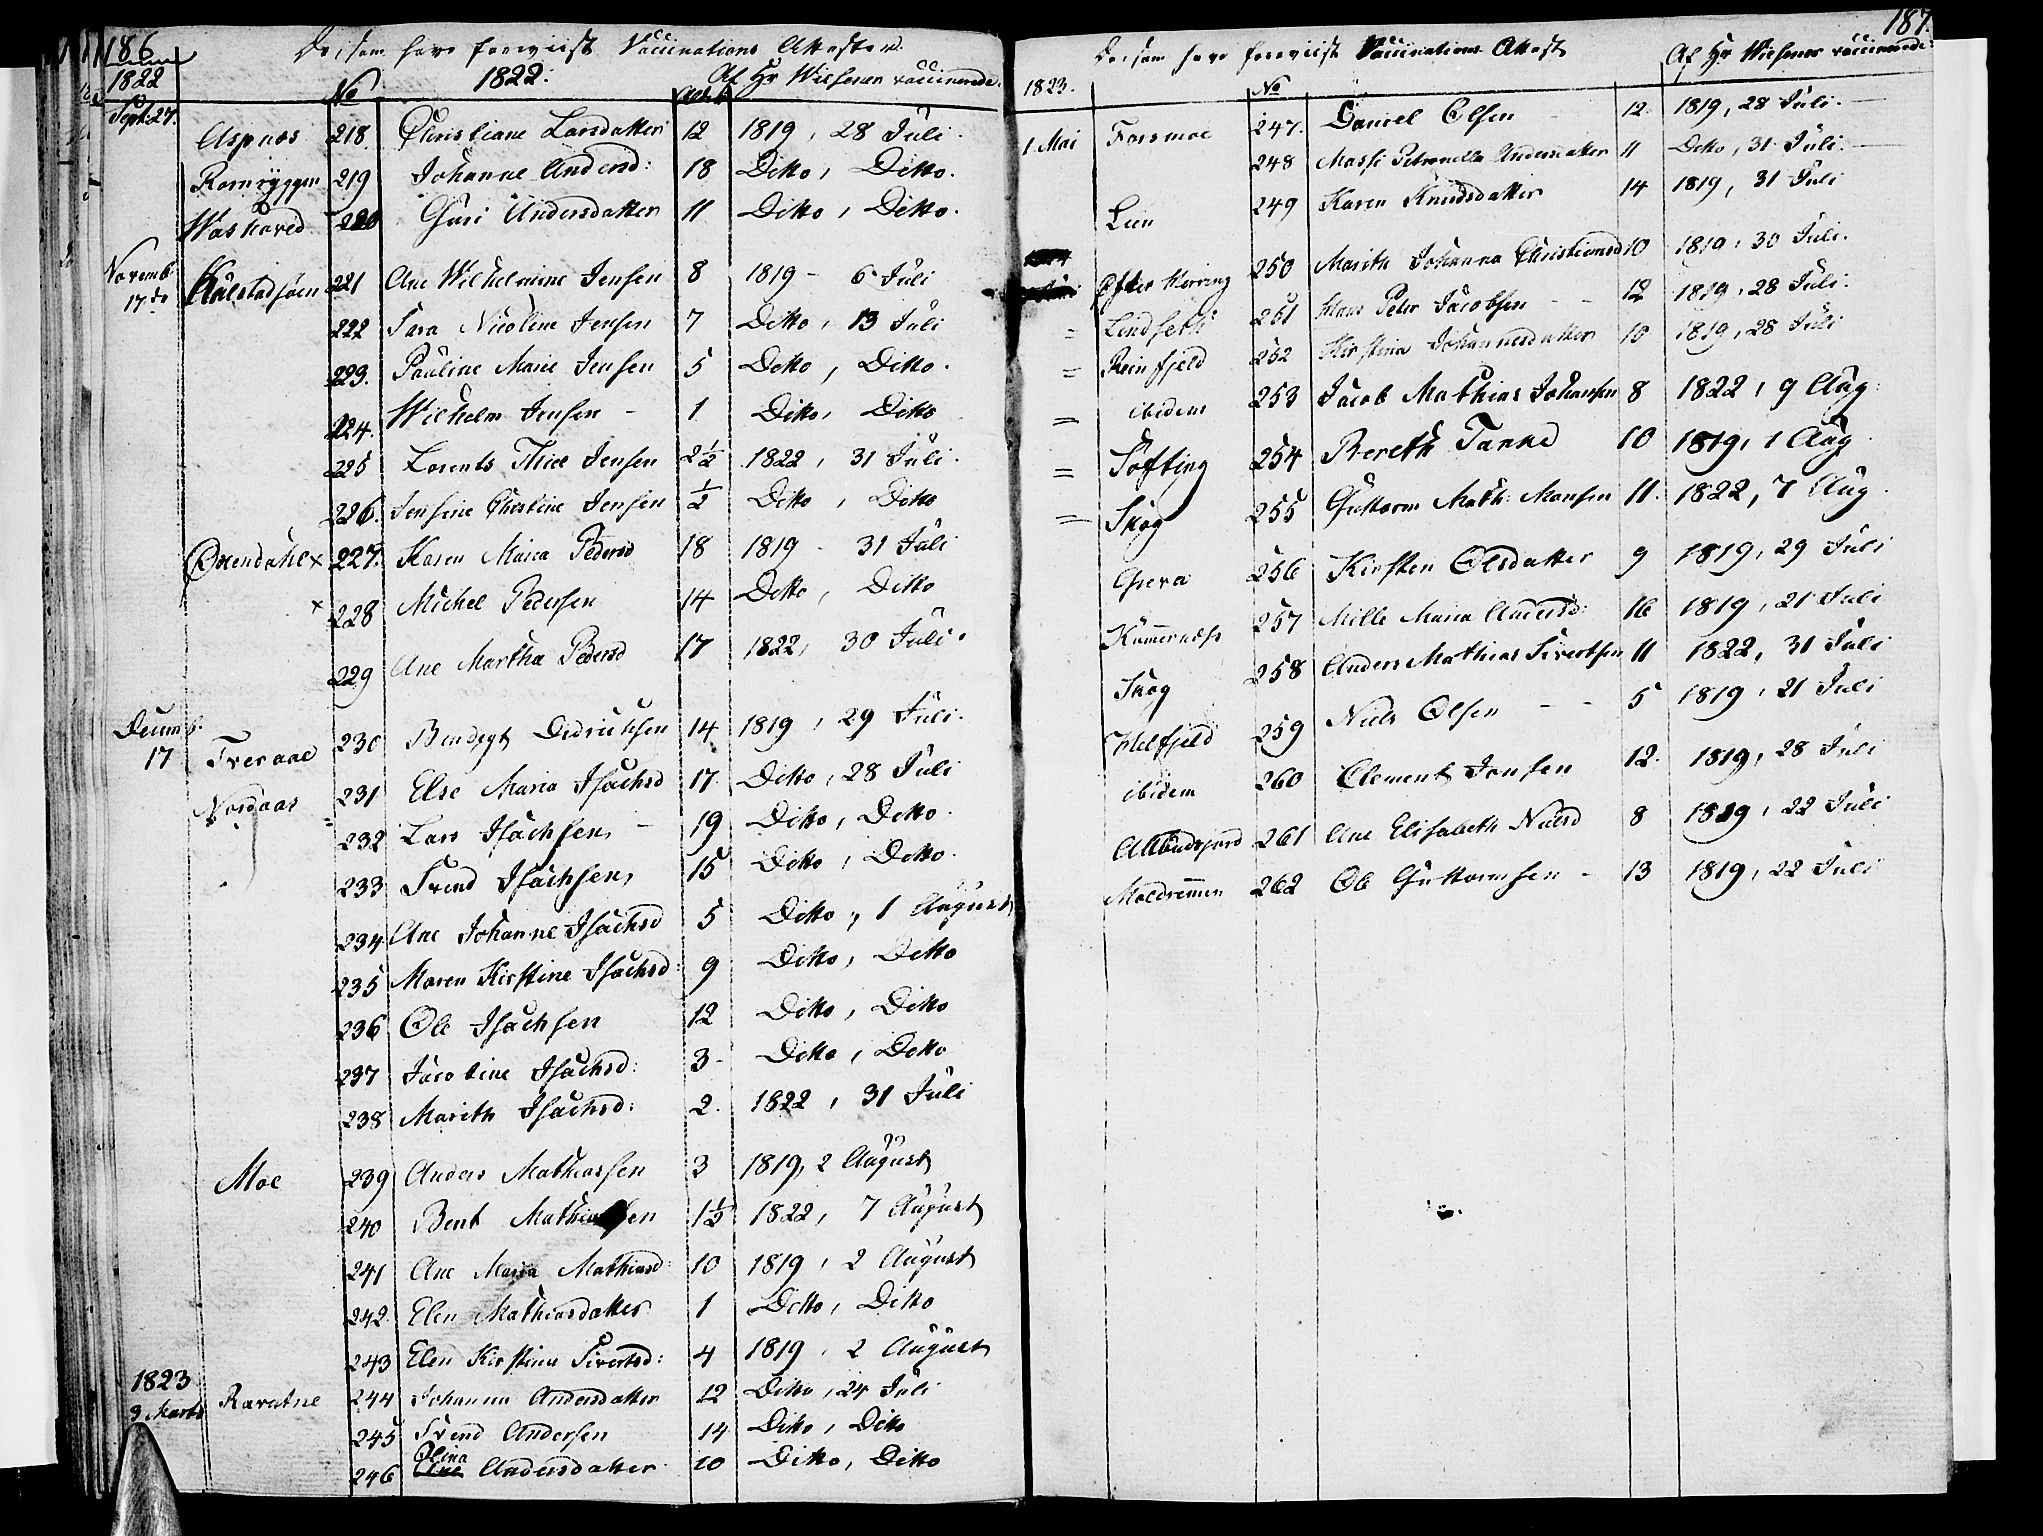 186
De, som have foreviist Vaccinations Attester.
1822
No 1822. Ald. Af Hr Wiesener vaccinerede.
Sept. 27. Aspnæs 218. Christiane Larsdatter 12 1819, 28 Juli.
219 Johanne Andersd: 18 Ditto, Ditto.
220 Guri Andersdatter 11 Ditto, Ditto.
Novemb: 17de 221 Ane Wilhelmine Jensen 8 1819 - 6 Juli
222 Sara Nicoline Jensen 7 Ditto, 13 Juli
223. Pauline Marie Jensen 5 Ditto, Ditto.
224. Wilhelm Jensen - 1 Ditto, Ditto
225 Lorents Jensen 2½ 1822, 31 Juli.
226. Jensine Christine Jensen ½ Ditto, Ditto
Oxendahl x 227. Karen Maria Pedersd 18 1819 - 31 Juli
x 228 Michel Pedersen 14 Ditto, Ditto
229 Ane Martha Pedersd 17 1822, 30 Juli.
Decemb: 17 Tveraae 230 Bendigt Didrichsen 14 1819, 29 Juli.
231 Else Maria Isachsd 17. Ditto, 28 Juli
232 Lars Isachsen, - 19 Ditto, Ditto.
233 Svend Isachsen, 15 Ditto, Ditto.
234 Ane Johanne Isachsd 5 Ditto, 1 August
235 Maren Kirstine Isachsd: 9 Ditto, Ditto
236 Ole Isachsen 12 Ditto, Ditto
237 Jacobine Isachsd: 3 - Ditto, Ditto
238 Marith Isachsd: 2. 1822, 31 Juli
Moe 239 Anders Mathiassen 3 1819, 2 August
240 Bent Mathiassen 1½ 1822, 7 August
241 Ane Maria Mathiasd: 10 1819, 2 August
242. Elen Mathiasdatter 1 Ditto, Ditto
243 Elen Kirstina Sivertsd: 4 1819, 2 August
1823
3 Marts Ravatne 244 Johanna Andersdatter 12 Ditto, 24 Juli
245 Svend Andersen 14 Ditto, Ditto
Olina
246 Ane Andersdatter 10 Ditto, Ditto
187.
De, som have foreviist Vaccinations Attest
Af Hr Wiesener vaccinerede:
1823. No
1 Mai Forsmoe 247. Daniel Olsen 12. 1819, 28 Juli.
248 Massi Petronella Andersdatter 11 Ditto, 31 Juli.
Lien 249 Karen Knudsdatter 14 1819, 31 Juli
250 Marith Johanna Christiansd 10 1819, 30 Juli.
= 251 Hans Peter Jacobsen - - 12 1819, 28 Juli.
= Reinfjeld 252 Kirstina Johannesdatter 10 1819, 28 Juli
= ibidem 253 Jacob Mathias Johansen 8 1822, 9 Aug:
= Søfting 254 Bereth Tanke 10 1819, 1 Aug.
= Skog 255 Guttorm Math: Monsen 11. 1822, 7 Aug.
256 Kirsten Olsdatter 9 1819, 29 Juli
257 Mille Maria Andersd: 16 1819, 21 Juli
Skog 258 Anders Mathias Sivertsen 11 1822, 31 Juli
259 Niels Olsen - - 5 1819, 21 Juli
ibidem 260 Clement Jonsen 12. 1819, 28 Juli
261 Ane Elisabeth Nielsd 8 1819, 22 Juli
262 Ole Guttormsen - 13 1819, 22 Juli